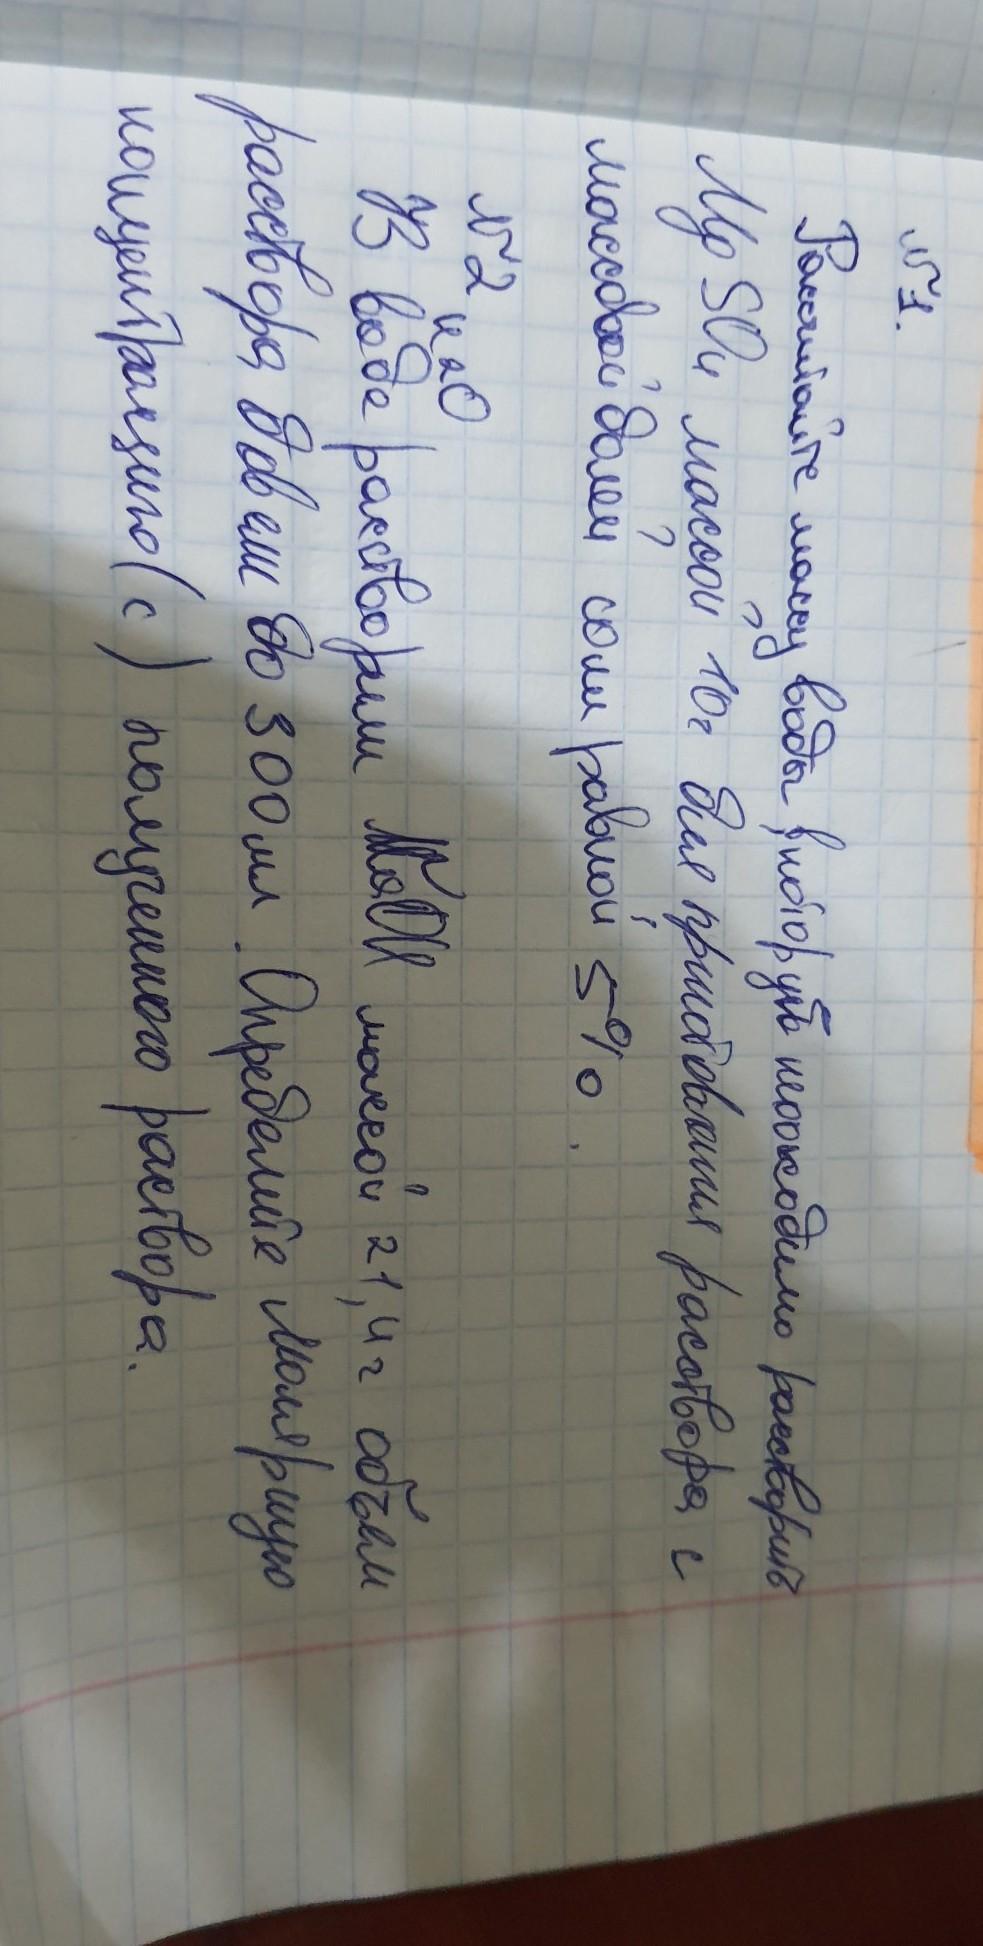 №1.
Рассчитайте массу воды, в которую необходимо растворить
MgSO4 массой 10г для приготовления раствора с
массовой долей соли равной 5%.
№2 H2O
В воде растворили NaOH массой 21,4г объём
раствора довели до 300мл. Определите молярную
концентрацию (с) полученного раствора.